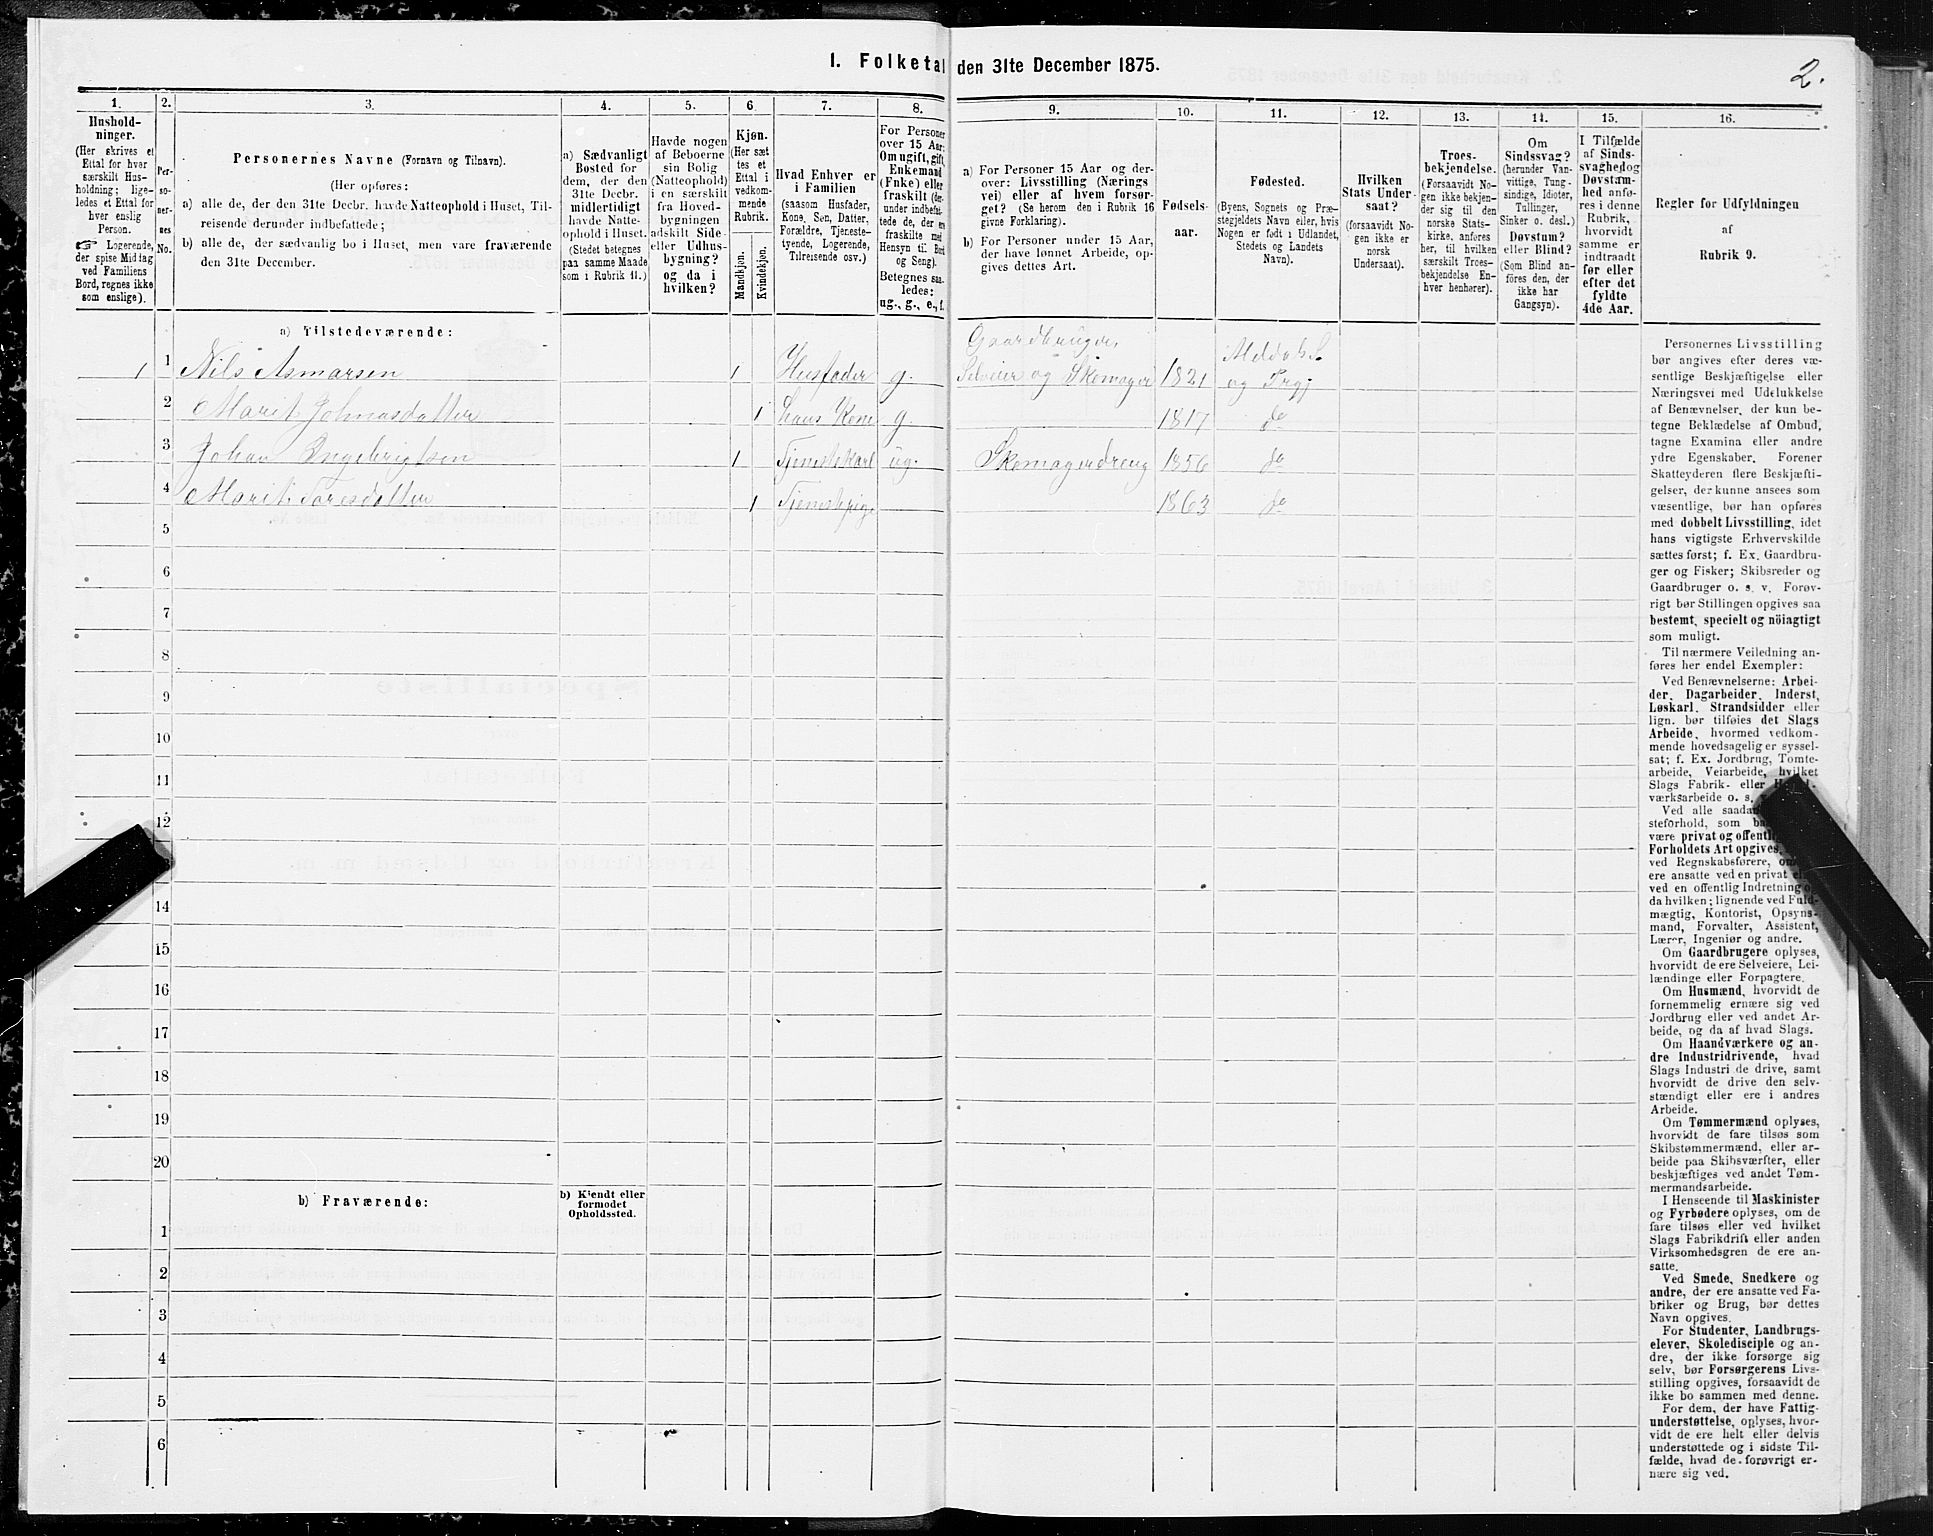 I. Folketal den 31te December 1875.
2.
1.
Hushold-
ninger.
(Her skrives et
Ettal for hver
særskilt Hus-
holdning; lige-
ledes et Ettal for
hver enslig
Person.
☞ Logerende,
der spise Middag
ved Familiens
Bord, regnes ikke
som enslige).
2.
Per-
so-
ner-
nes
No.
3.
Personernes Navne (Fornavn og Tilnavn).
(Her opføres:
a) alle de, der den 31te Decbr. havde Natteophold i Huset, Til-
reisende derunder indbefattede;
b) alle de, der sædvanlig bo i Huset, men vare fraværende
den 31te December.
4.
a) Sædvanligt
Bosted for
dem, der den
31te Decbr.
midlertidigt
havde Natte-
ophold i Huset.
(Stedet betegnes
paa samme Maade
som i Rubrik 11.)
5.
Havde nogen
af Beboerne
sin Bolig
(Natteophold)
i en særskilt
fra Hoved-
bygningen
adskilt Side-
eller Udhus-
bygning?
og da i
hvilken?
6.
Kjøn.
(Her sæt
tes et
Ettal i
vedkom-
mende
Rubrik.
Mandkjøn.
Kvindekjøn.
7.
Hvad Enhver er
i Familien
(saasom Husfader,
Kone, Søn, Datter,
Forældre, Tjeneste-
tyende, Logerende,
Tilreisende osv.)
8.
For Personer
over 15 Aar:
Om ugift, gift,
Enkemand
(Enke) eller
fraskilt (der-
under indbefat-
tede de, der ere
fraskilte med
Hensyn til Bord
og Seng).
Betegnes saa-
ledes:
ug., g., e., f.
9.
a) For Personer 15 Aar og der-
over: Livsstilling (Nærings
vei) eller af hvem forsør-
get? (Se herom den i Rubrik 16
givne Forklaring).
b) For Personer under 15 Aar,
der have lønnet Arbeide, op-
gives dettes Art.
10.
Fødsels-
aar.
11.
Fødested.
(Byens, Sognets og Præ-
stegjeldets Navn eller, hvis
Nogen er født i Udlandet,
Stedets og Landets
Navn).
12.
Hvilken
Stats Under-
saat?
(forsaavidt No-
gen ikke er
norsk
Undersaat).
13.
Troes-
bekjendelse.
(Forsaavidt No-
gen ikke bekjen-
der sig til den
norske Stats-
kirke, anføres
her, til hvilken
særskilt Troes-
bekjendelse En-
hver henhører).
14.
Om
Sindssvag?
(herunder Van-
vittige, Tung-
sindige, Idioter,
Tullinger,
Sinker o. desl.)
Døvstum?
eller Blind?
(Som Blind an-
føres den, der
ikke har
Gangsyn).
15.
I Tilfælde
af Sinds-
svaghed og
Døvstum-
hed anfø-
res i denne
Rubrik,
hvorvidt
samme er
indtraadt
før eller
efter det
fyldte
4de Aar.
16.
Regler for Udfyldningen
af
Rubrik 9.
a) Tilstedeværende:
1 1 Nils Asmarsen 1 Husfader g. Gaardbruger, Selveier og Skomager 1821 Meldals S. og Prgj
2 Marit Johnasdatter 1 hans Kone g. 1817 do
3 Johan Ingebrigtsen 1 Tjenestekarl ug. Skomagerdreng 1856 do
4 Marit Toresdatter 1 Tjenstepige 1863 do
5
6
7
8
9
10
11
12
14
15
16
17
18
19
20
b) Fraværende:
b) Kjendt eller
formodet
Opholdssted.
1
2
3
4
5
6
Personernes Livsstilling
bør angives efter deres væ-
sentlige Beskjæftigelse eller
Næringsvei med Udelukkelse
af Benævnelser, der kun be-
tegne Beklædelse af Ombud,
tagne Examina eller andre
ydre Egenskaber. Forener
Skatteyderen flere Beskjæfti-
gelser, der kunne ansees som
væsentlige, bør han opføres
med dobbelt Livsstilling, idet
hans vigtigste Erhvervskilde
sættes først; f. Ex. Gaardbru-
ger og Fisker; Skibsreder og
Gaardbruger o. s. v. Forøv-
rigt bør Stillingen opgives saa
bestemt, specielt og nøiagtigt
som muligt.
Til nærmere Veiledning an-
føres her endel Exempler:
Ved Benævnelserne: Arbei-
der, Dagarbeider, Inderst,
Løskarl, Strandsidder eller
lign. bør tilføies det Slags
Arbeide, hvormed vedkom-
mende hovedsagelig er syssel-
sat; f. Ex. Jordbrug, Tomte-
arbeide, Veiarbeide, hvilket
Slags Fabrik- eller
værksarbeide o. s.
Ved alle saadan
steforhold, som
være privat og offentl
Forholdets Art opgives,
ved Regnskabsførere,
ere ansatte ved en privat
ved en offentlig Indretning
da hvilken; lignende ved Fuld-
mægtig, Kontorist, Opsyns-
mand, Forvalter, Assistent,
Lærer, Ingeniør og andre.
Om Gaardbrugere oplyses,
hvorvidt de ere Selveiere, Lei-
lændinge eller Forpagtere.
Om Husmænd, hvorvidt de
fornemmelig ernære sig ved
Jordbrug eller ved andet Ar-
beide, og da af hvad Slags.
Om Haandværkere og an-
dre Industridrivende, hvad
Slags Industri de drive, samt
hvorvidt de drive den selv-
stændigt eller ere i andres
Arbeide.
Om Tømmermænd oplyses,
hvorvidt de fare tilsøs som
Skibstømmermænd, eller ar-
beide paa Skibsværfter, eller
beskjæftiges ved andet Tøm-
mermandsarbeide.
I Henseende til Maskinister
og Fyrbødere oplyses, om de
fare tilsøs eller ved hvilket
Slags Fabrikdrift eller anden
Virksomhedsgren de ere an-
satte.
Ved Smede, Snedkere og
andre, der ere ansatte ved Fa-
briker og Brug, bør dettes
Navn opgives.
For Studenter, Landbrugs-
elever, Skoledisciple og an-
dre, der ikke forsørge sig
selv, bør Forsørgerens Livs-
stilling opgives, forsaavidt de
ikke bo sammen med denne.
For dem, der have Fattig-
understøttelse, oplyses, hvor-
vidt de ere helt eller delvis
understøttede og i sidste Til-
fælde, hvad de forøvrigt er-
nære sig ved.